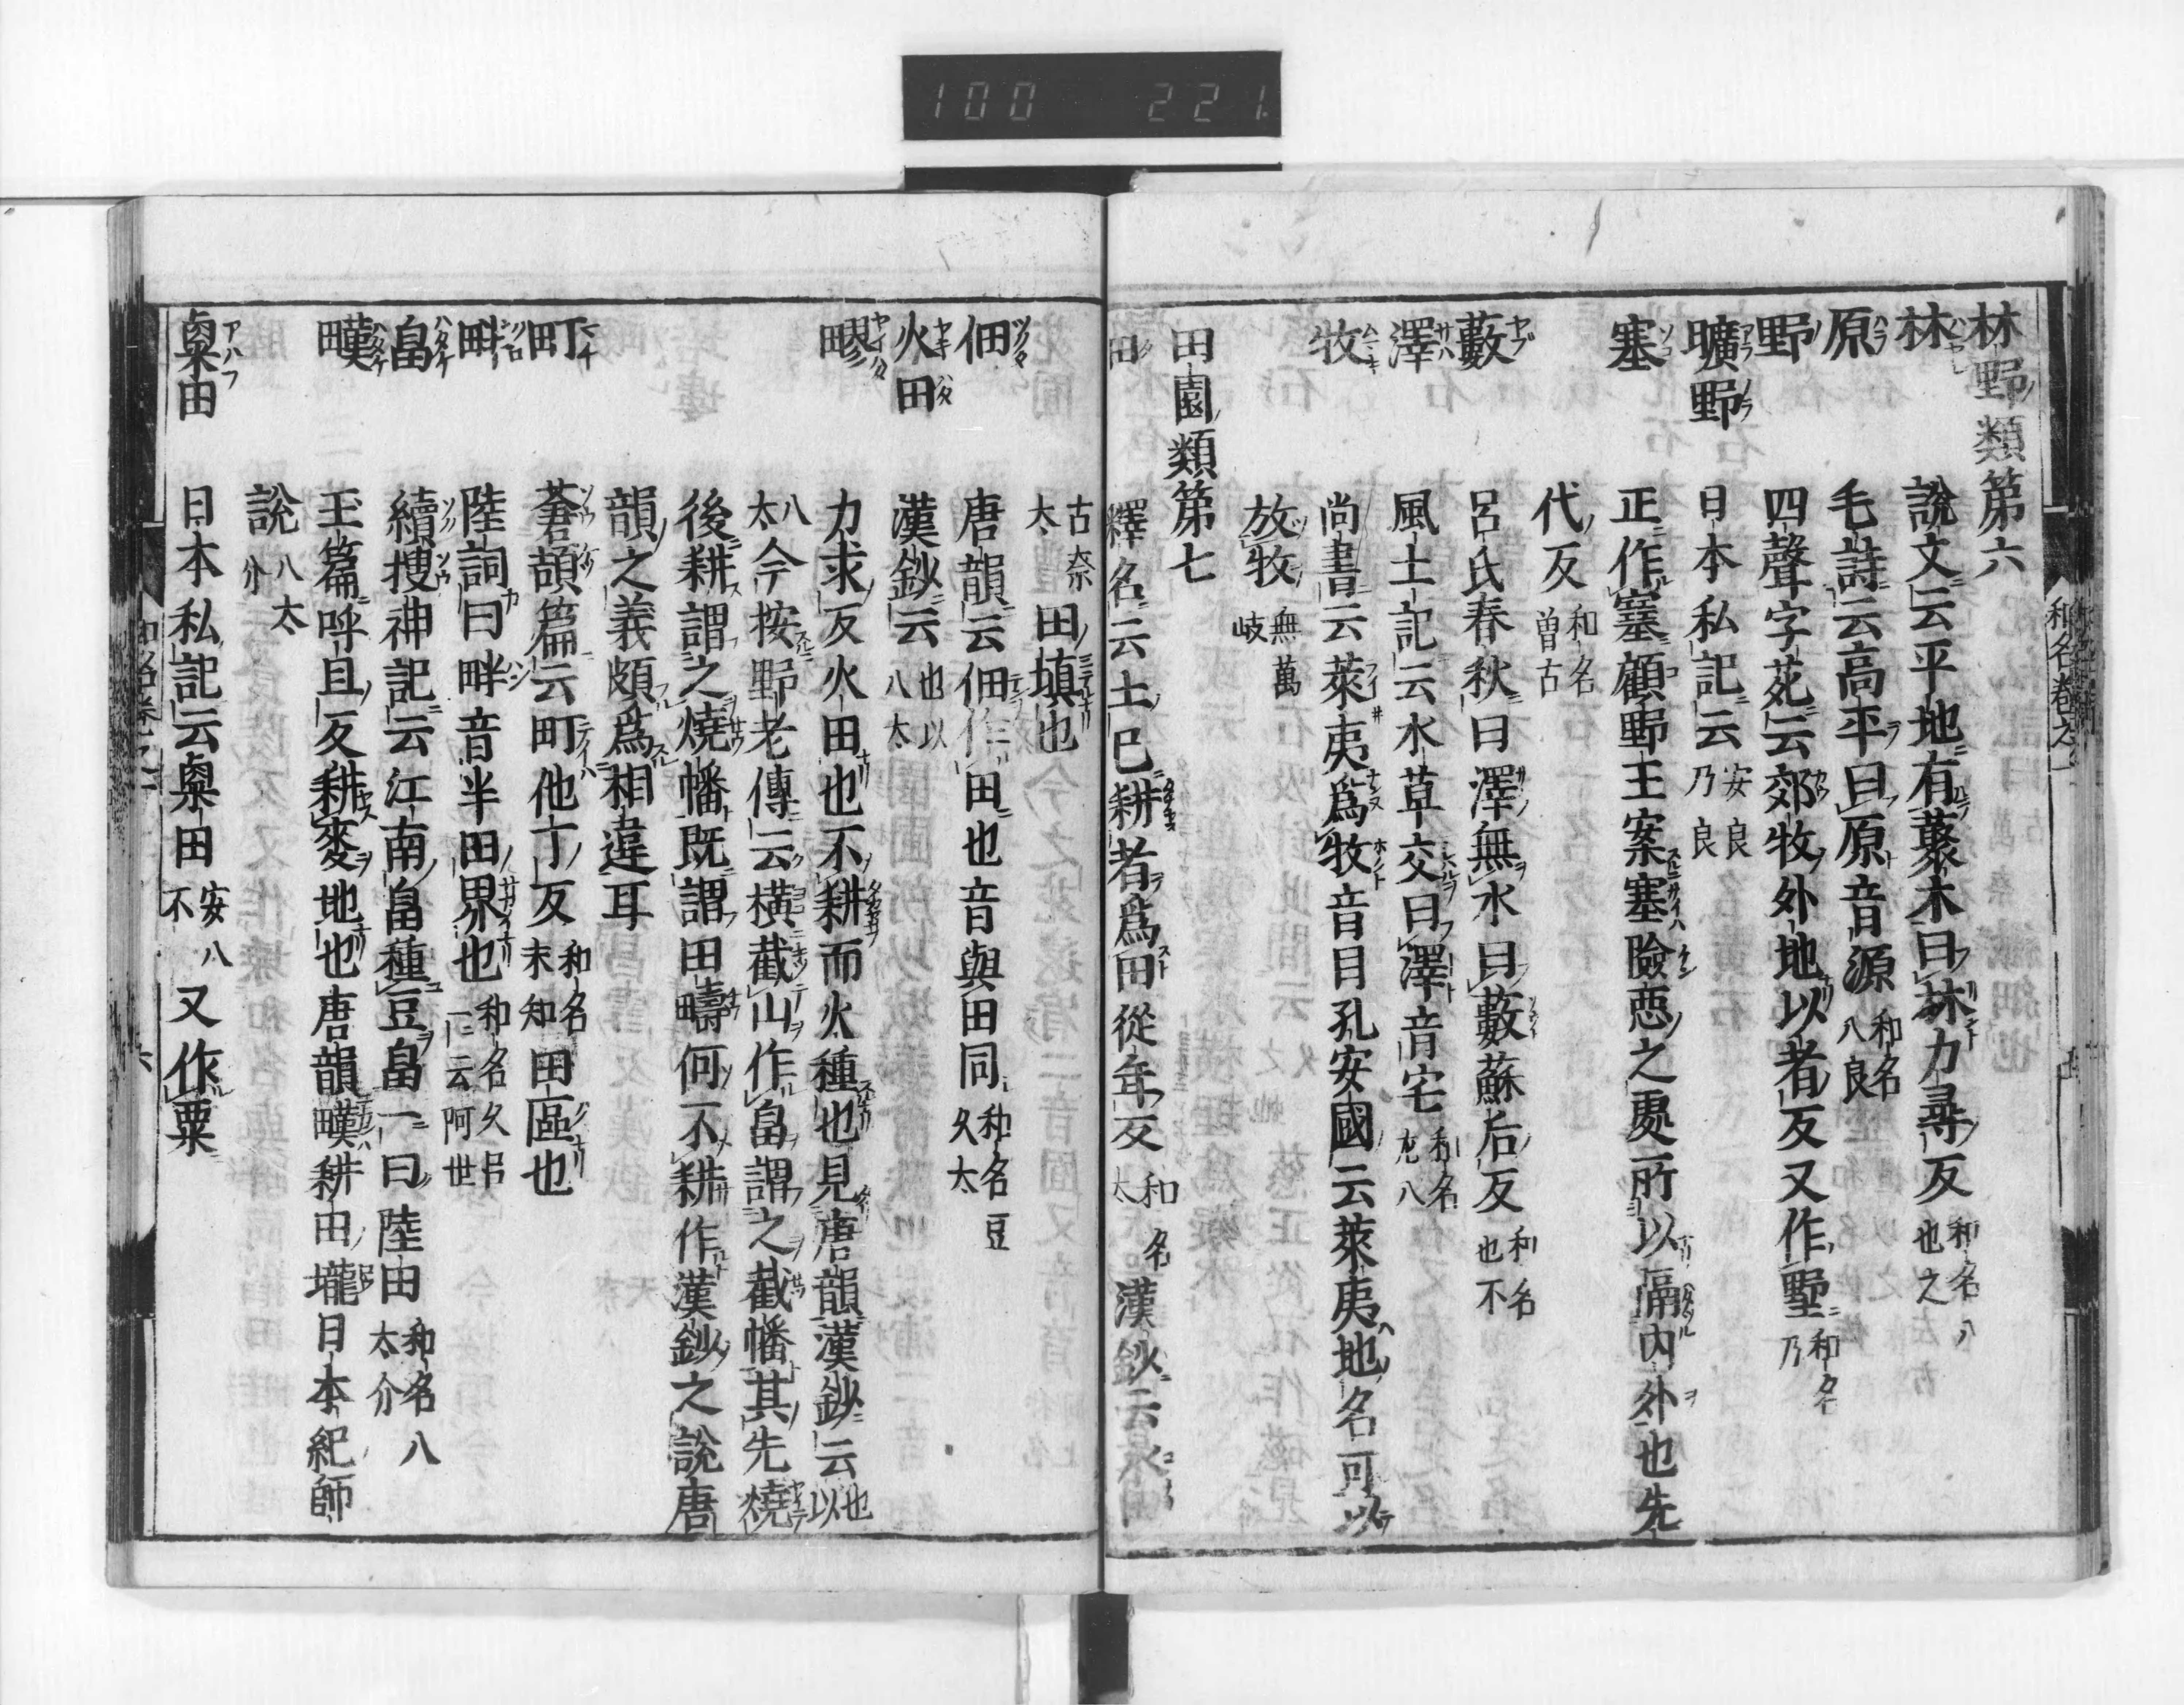 100 221
林野類第六
林 說文云平地有藂木曰林力尋反和名八也之
原 毛詩云高平曰原音源和名八良
野 四聲字苑云郊牧外地以者反又作墅和名乃
曠野 日本私記云安良乃良
塞 正作塞顧野王案塞險惡之處所以隔內外也先
代反和名曾古
藪 呂氏春秋曰澤無水曰藪蘇后反和名也不
澤 風土記云水草交曰澤音宅和名左八
牧 尚書云萊夷爲牧音目孔安國云萊夷地名可以
放牧無萬岐
田園類第七
田 釋名云土已耕者爲田從年反和名太漢鈔云水田
古奈太田塡也
佃 唐韻云佃作田也音與田同和名豆久太
火田 漢鈔云也以八太
疁 力求反火田也不耕而火種也見唐韻漢鈔云也以
八太今按野老傳云橫截山作畠謂之截幡其先燒
後耕謂之燒幡既謂田疇何不耕作漢鈔之說唐
韻之義頗爲相違耳
町 蒼頡篇云町他丁反和名末知田區也
畔 陸詞曰畔音半田界也和名久呂一云阿世
畠 續搜神記云江南畠種豆畠一曰陸田和名八太介
暵 玉篇呼旦反耕麥地也唐韻暵耕田壠日本紀師
說八太介
粟田 日本私記云粟田安八不又作粟